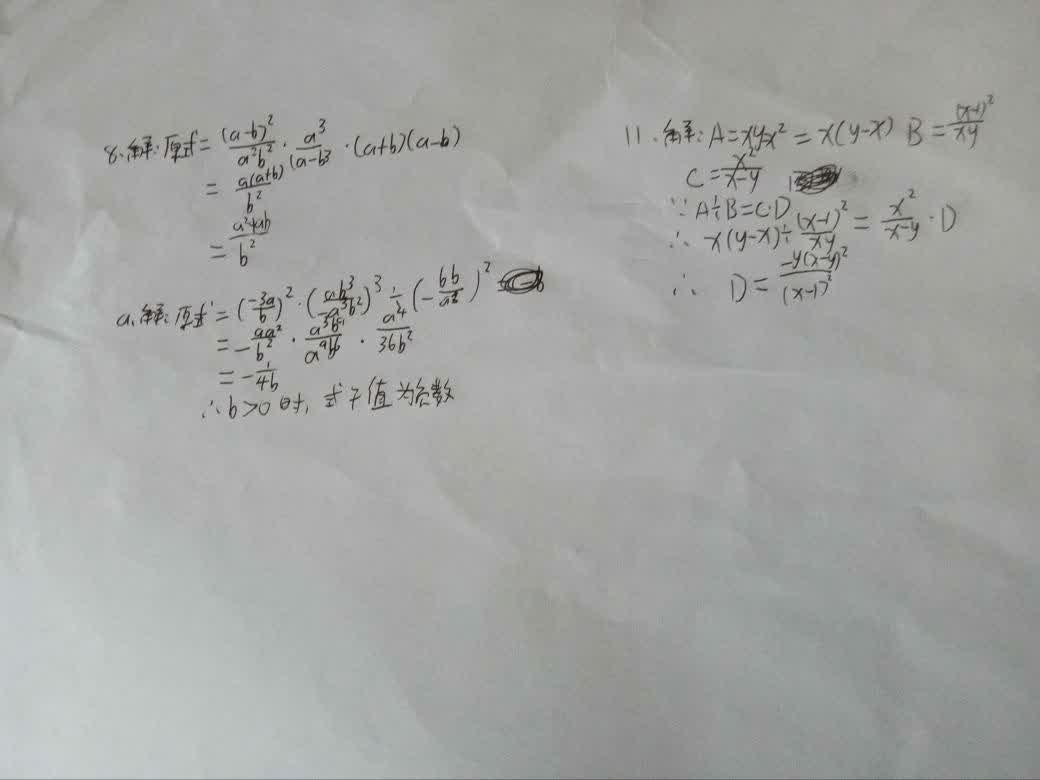 8.解:原式=(a-b)²/a²b²·a³/(a-b)³·(a+b)(a-b)
=a(a+b)/b²
=a²+ab/b²
a.解:原式=(-3a/b)²·(ab³/-a³b²)³÷(-6b/a²)²
=-9a²/b²·a³b⁹/a⁹b⁶·a⁴/36b²
=-1/4b
∴b>0时,式子值为负数
11.解:A=xy-x²=x(y-x) B=(x-1)²/xy
C=x²/x-y
∵A÷B=C·D
∴x(y-x)÷(x-1)²/xy=x²/x-y·D
∴D=-y(x-y)²/(x-1)²